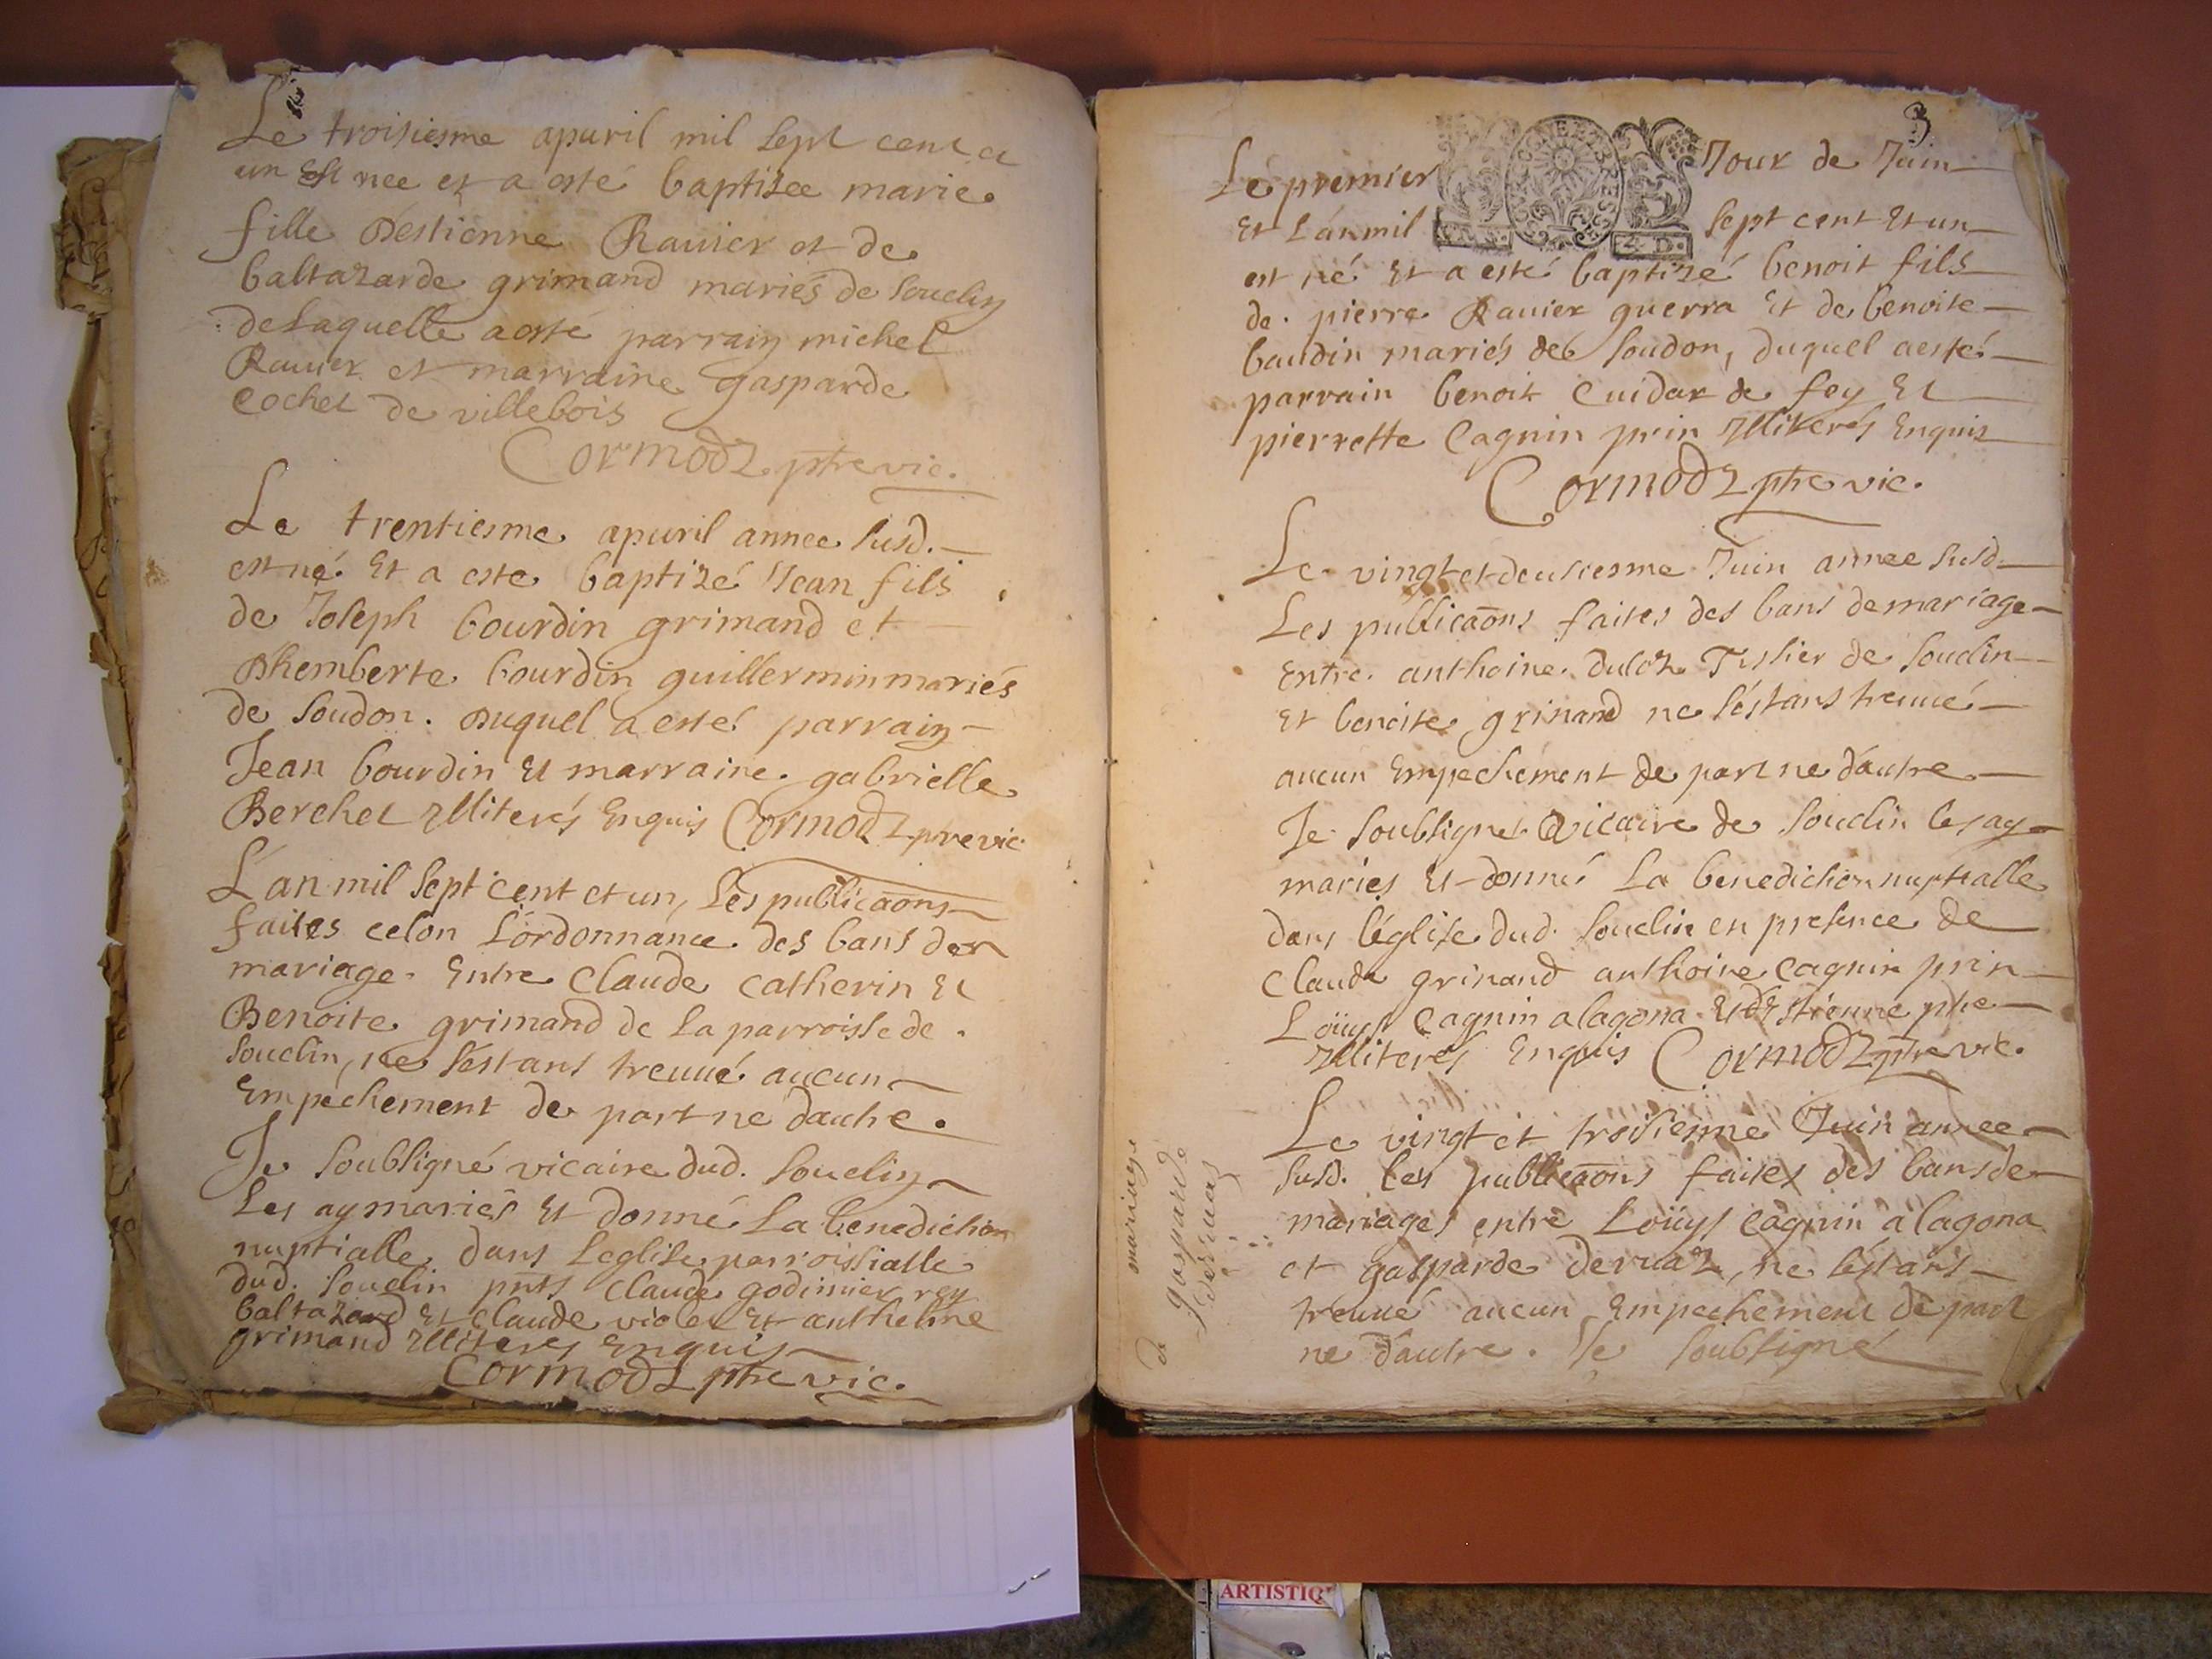 Le troisiesme apuril mil sept cent et
un Est nee et a esté baptisee marie
fille Destienne Rauier et de
baltazarde grimand mariés de souclin
de Laquelle a esté parrain michel
Rauier et marraine gasparde
cochet de villebois
Cormodz ptre vic.
Le trentiesme apuril annee susd.
est né Et a este baptizé Jean fils
de Joseph bourdin grimand et
Dhemberte bourdin guillermin mariés
de soudon. Duquel a esté parrain
Jean bourdin Et marraine gabrielle
Berchet Illiterés Enquis Cormodz pre vic
L'an mil sept cent et un, Les publicaõns
faites celon L'ordonnance des bans de
mariage Entre Claude Catherin Et
Benoite grimand de La parroisse de
souclin, ne s'estant treuué aucun
Empechement de part ne dautre.
Je soubsigné vicaire dud. souclin
Les ay mariés Et donné La benediction
nuptialle dans Leglise parroissialle
dud. souclin pnts Claude godimier rey
baltazard Et Claude violet Et anthelme
grimand Illiterés Enquis
Cormodz ptre vic.
3
Le premier Jour de Juin
Et L'an mil sept cent Et un
GEN.
4 D.
est né Et a esté baptizé benoit fils
de pierre Rauier guerra Et de benoite
baudin mariés de soudon, duquel a esté
parrain benoit Cuidar de fey Et
pierrette Cagnin prin Illiterés Enquis
Cormodz ptre vic.
Le vingt et deusiesme Juin annee susd.
Les publicaõns faites des bans de mariage
Entre anthoine duloz Tissier de souclin
Et benoite grimand ne s'estant treuué
aucun Empechement de part ne dautre
Je soubsigné vicaire de souclin les ay
mariés Et donné La benediction nuptialle
dans l'église dud. souclin en presence de
Claude grimand anthoine Cagnin prin
Loüys Cagnin alagona Et Estienne phe
Illiterés Enquis Cormodz ptre vic.
Le vingt et troisiesme Juin annee
susd. les publicaõns faites des bans de
mariages entre Loüys Cagnin alagona
et gasparde deruaz, ne s'estant
treuué aucun Empechement de part
ne d'autre. Je soubsigné
mariage
d gasparde
deruaz
ARTISTIQ